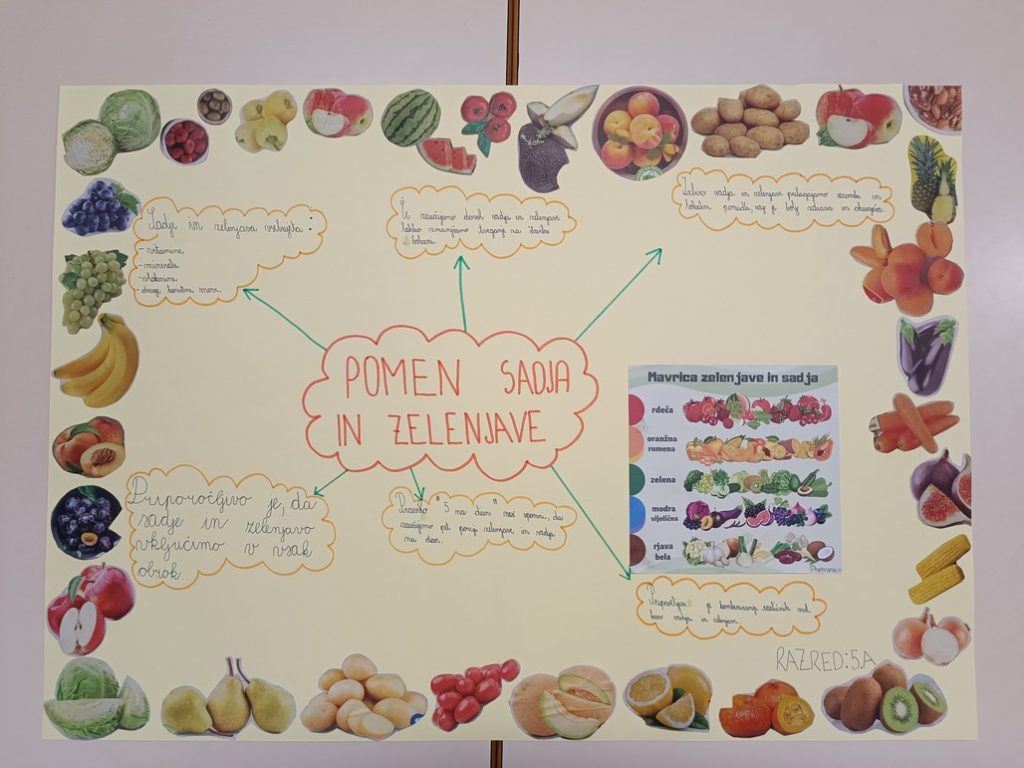 Sadje in zelenjava vsebujta:
- vitamine
- minerale
- vlaknine
- druge koristne snovi.
Če zaužijemo dovolj sadja in zelenjave
lahko zmanjšamo tveganje za številne
bolezni.
Izbiro sadja in zelenjave prilagajamo sezonski in
lokalni ponudbi, saj je bolj zdrava in okusnejša.
POMEN SADJA
IN ZELENJAVE
Mavrica zelenjave in sadja
rdeča
oranžna
rumena
zelena
modra
vijolična
rjava
bela
Prehrana.si
Priporočljivo je, da
sadje in zelenjavo
vključimo v vsak
obrok.
Pravilo "5 na dan" nas spomni, da
zaužijemo pet porcij zelenjave in sadja
na dan.
je kombiniranje različnih
barv sadja in zelenjave.
RAZRED: 5.A